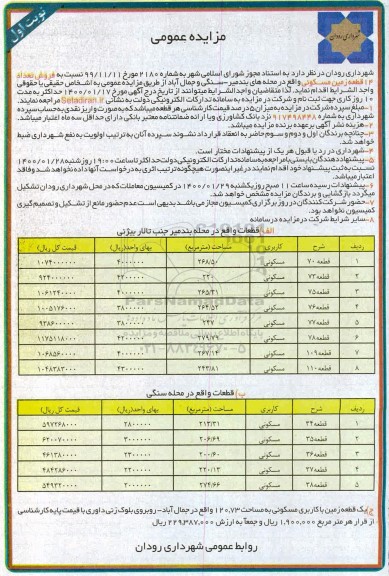 نوبت اول
مزایده عمومی
شهرداری رودان
شهرداری رودان در نظر دارد به استناد مجوز شورای اسلامی شهر به شماره ۲۱۸۰ مورخ ۹۹/۱۱/۱۱ نسبت به فروش تعداد
۱۴ قطعه زمین مسکونی واقع در محله های بندمیر-سنگی و جمال آباد از طریق مزایده عمومی به اشخاص حقیقی یا حقوقی
واجد الشرایط اقدام نماید. لذا متقاضیان واجد الشرایط میتوانند از تاریخ درج آگهی مورخ ۱۴۰۰/۰۱/۱۷ حداکثر به مدت
۱۰ روز کاری جهت ثبت نام و شرکت در مزایده به سامانه تدارکات الکترونیکی دولت به نشانی Setadiran.ir مراجعه نمایند.
۱-مبلغ سپرده شرکت در مزایده به میزان ۵ درصد قیمت کارشناسی هر قطعه میباشد که به صورت واریز نقدی به حساب سپرده
شهرداری به شماره ۹۱۷۴۹۸۴۴۸ نزد بانک کشاورزی و یا ارائه ضمانتنامه معتبر بانکی دارای حداقل سه ماه اعتبار میباشد.
۲-هزینه نشر آگهی بر عهده برنده مزایده میباشد.
۳-چنانچه برندگان اول و دوم و سوم حاضر به انعقاد قرارداد نشوند سپرده آنان به ترتیب اولویت به نفع شهرداری ضبط
خواهد شد.
۴-شهرداری در رد یا قبول هر یک از پیشنهادات مختار است.
۵-پیشنهاد دهندگان بایستی با مراجعه به سامانه تدارکات الکترونیکی دولت حداکثر تا ساعت ۱۹:۰۰ روز شنبه ۱۴۰۰/۰۱/۲۸
نسبت به ثبت پیشنهاد خود اقدام نمایند در غیر اینصورت هیچگونه ترتیب اثری به درخواست آنها داده نخواهد شد و فاقد
اعتبار میباشد.
۶-پیشنهادات رسیده ساعت ۱۱ صبح روز یکشنبه ۱۴۰۰/۰۱/۲۹ در کمیسیون معاملات که در محل شهرداری رودان تشکیل
میگردد بازگشایی و برندگان مزایده مشخص خواهد شد.
۷-حضور شرکت کنندگان در روز برگزاری کمیسیون مجاز می باشد بدیهی است عدم حضور مانع از تشکیل و تصمیم گیری
کمیسیون نخواهد بود.
۸-سایر شرایط شرکت در مزایده در سامانه
الف) قطعات واقع در محله بندمیر جنب تالار بیژنی
ردیف شرح کاربری مساحت (مترمربع) بهای واحد (ریال) قیمت کل ریال
۱ قطعه ۷۰ مسکونی ۲۶۸/۵۰ ۴۰۰۰۰۰۰ ۱۰۷۴۰۰۰۰۰۰
۲ قطعه ۷۳ مسکونی ۲۲۰ ۴۲۰۰۰۰۰ ۹۲۴۰۰۰۰۰۰
۳ قطعه ۷۵ مسکونی ۲۶۵/۳۱ ۴۰۰۰۰۰۰ ۱۰۶۱۲۴۰۰۰۰
۴ قطعه ۷۶ مسکونی ۲۶۴/۵۲ ۳۸۰۰۰۰۰ ۱۰۰۵۱۷۶۰۰۰
۵ قطعه ۷۷ مسکونی ۲۴۷ ۳۸۰۰۰۰۰ ۹۳۸۶۰۰۰۰۰
۶ قطعه ۷۸ مسکونی ۲۷۹/۷۹ ۴۲۰۰۰۰۰ ۱۱۷۵۱۱۸۰۰۰
۷ قطعه ۱۰۹ مسکونی ۲۶۷/۱۴ ۴۰۰۰۰۰۰ ۱۰۶۸۵۶۰۰۰۰
۸ قطعه ۱۱۰ مسکونی ۲۴۳/۸۱ ۴۳۰۰۰۰۰ ۱۰۴۸۳۸۳۰۰۰
ParsNamadData
۰۲۱-۸۸۳۴۹۶۷۰-۵
ب) قطعات واقع در محله سنگی
ردیف شرح کاربری مساحت (مترمربع) بهای واحد (ریال) قیمت کل ریال
۱ قطعه ۳۴ مسکونی ۲۱۳/۳۱ ۲۸۰۰۰۰۰ ۵۹۷۲۶۸۰۰۰
۲ قطعه ۳۵ مسکونی ۲۰۶/۶۹ ۳۰۰۰۰۰۰ ۶۲۰۰۷۰۰۰۰
۳ قطعه ۳۶ مسکونی ۲۰۰/۶۰ ۲۳۰۰۰۰۰ ۴۶۱۳۸۰۰۰۰
۴ قطعه ۳۷ مسکونی ۲۲۰/۱۳ ۲۲۰۰۰۰۰ ۴۸۴۲۸۶۰۰۰
۵ قطعه ۳۸ مسکونی ۲۷۴/۶۶ ۲۰۰۰۰۰۰ ۵۴۹۳۲۰۰۰۰
ج) یک قطعه زمین با کاربری مسکونی به مساحت ۱۲۰.۷۳ واقع در جمال آباد-روبروی بلوک زنی داوری با قیمت پایه کارشناسی
از قرار هر متر مربع ۱,۹۰۰,۰۰۰ ریال و جمعاً به ارزش ۲۲۹,۳۸۷,۰۰۰ ریال
روابط عمومی شهرداری رودان